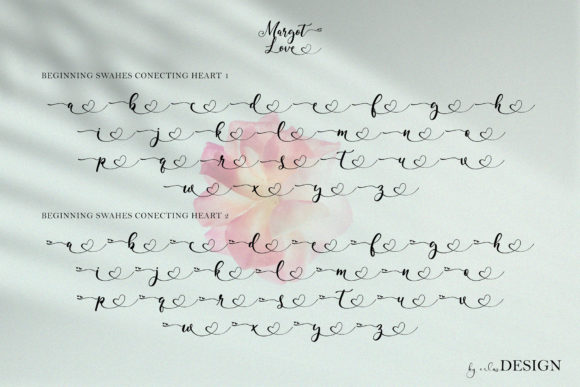 Margot
Love
BEGINNING SWAHES CONECTING HEART 1
a b c d e f g h
i j k l m n o
p q r s t u v
w x y z
BEGINNING SWAHES CONECTING HEART 2
a b c d e f g h
i j k l m n o
p q r s t u v
w x y z
by DESIGN